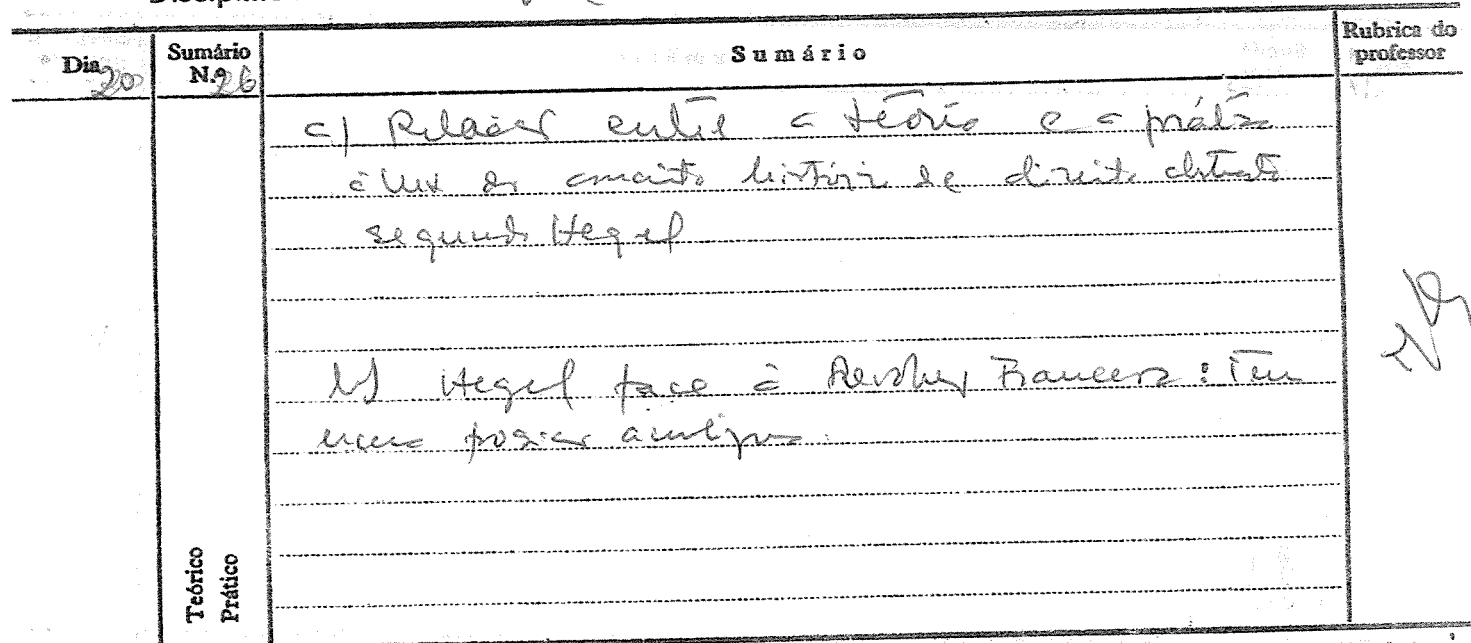 Dia 20
Sumário N.º 26
Sumário
Rubrica do professor
a) Relação entre a teoria e a prática
à luz do conceito histórico de direito abstrato
segundo Hegel
b) Hegel face à Revolução Francesa:
uma posição ambígua.
Teórico
Prático